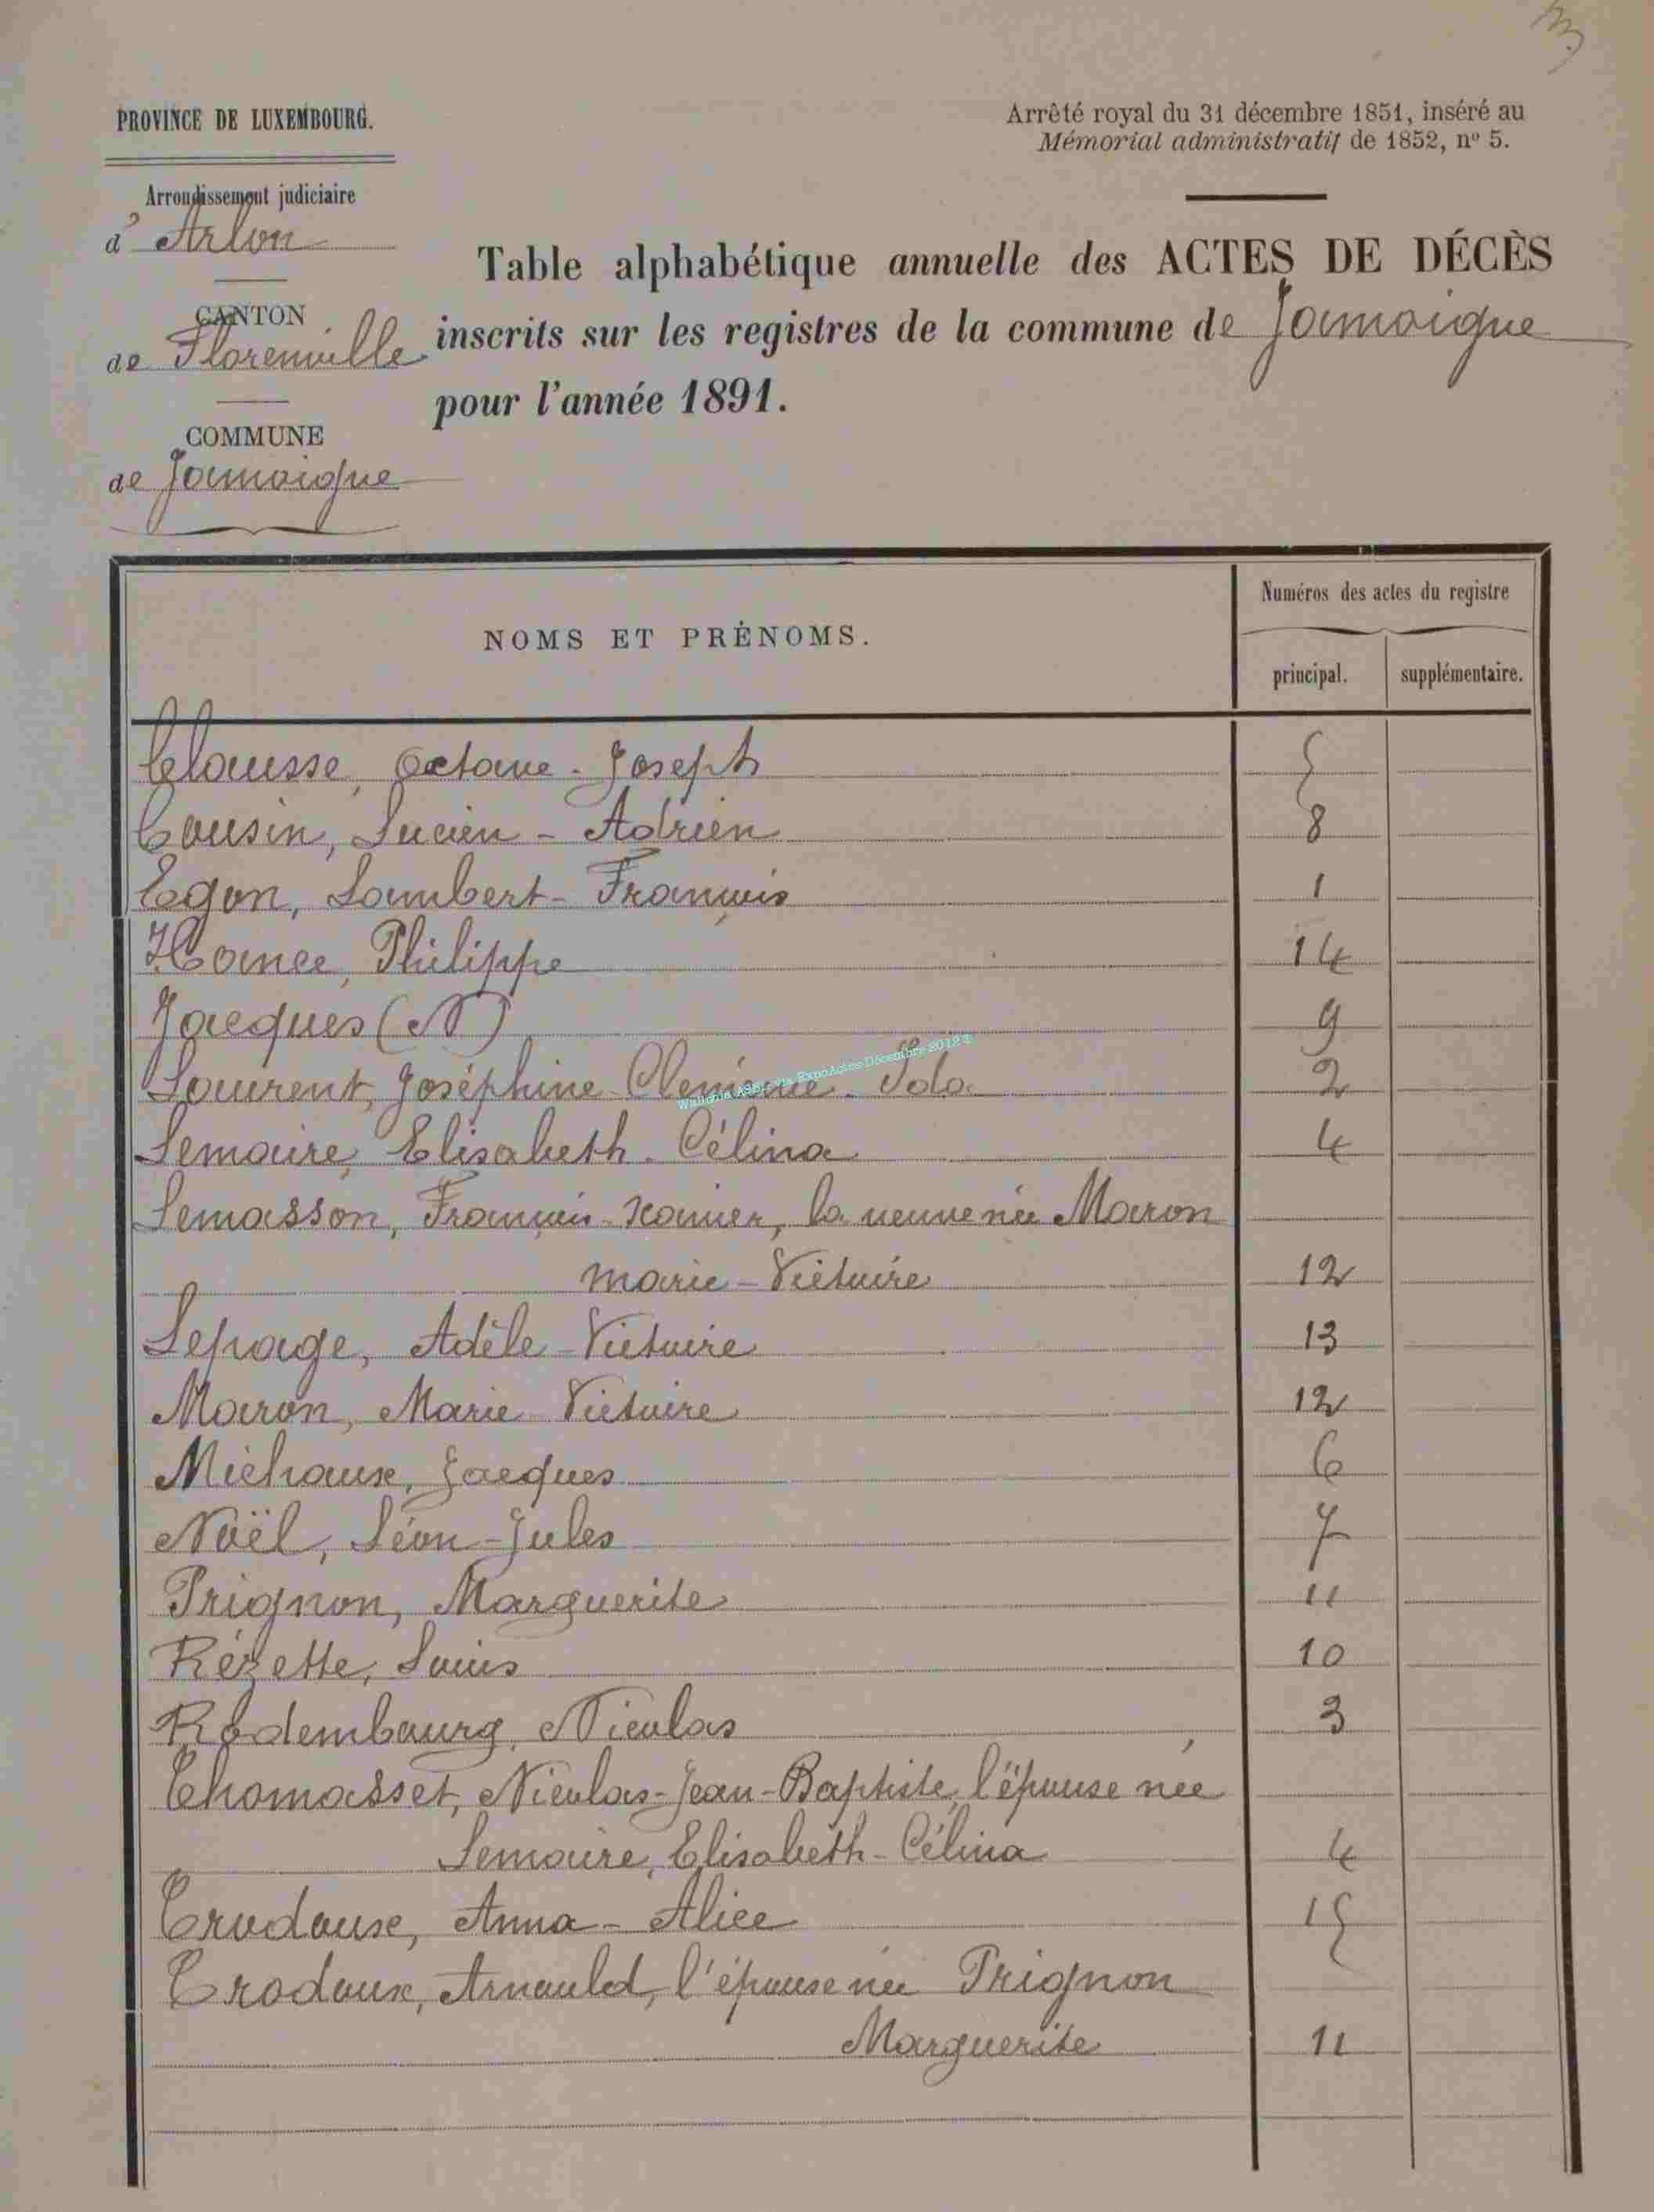 PROVINCE DE LUXEMBOURG.
Arrêté royal du 31 décembre 1851, inséré au
Mémorial administratif de 1852, nº 5.
Arrondissement judiciaire
d'Arlon
CANTON
de Florenville
COMMUNE
de Jamoigne
Table alphabétique annuelle des ACTES DE DÉCÈS
inscrits sur les registres de la commune de Jamoigne
pour l'année 1891.
NOMS ET PRÉNOMS.
Numéros des actes du registre
principal. supplémentaire.
Clausse, Octave-Joseph 5
Cousin, Lucien-Adrien 8
Egon, Lambert-François 1
Hance, Philippe 14
Jacques (N) 9
Laurent, Joséphine-Clémence- 2
Lemaire, Elisabeth-Célina 4
Lemasson, François-Xavier, la veuve née Maron
Marie-Victoire 12
Lepage, Adèle-Victoire 13
Maron, Marie-Victoire 12
Michaux, Jacques 6
Noël, Léon-Jules 7
Prignon, Marguerite 11
Rézette, Louis 10
Rodembourg, Nicolas 3
Thomasset, Nicolas-Jean-Baptiste, l'épouse née
Lemaire, Elisabeth-Célina 4
Trodoux, Anna-Alice 15
Trodoux, Arnauld, l'épouse née Prignon
Marguerite 11